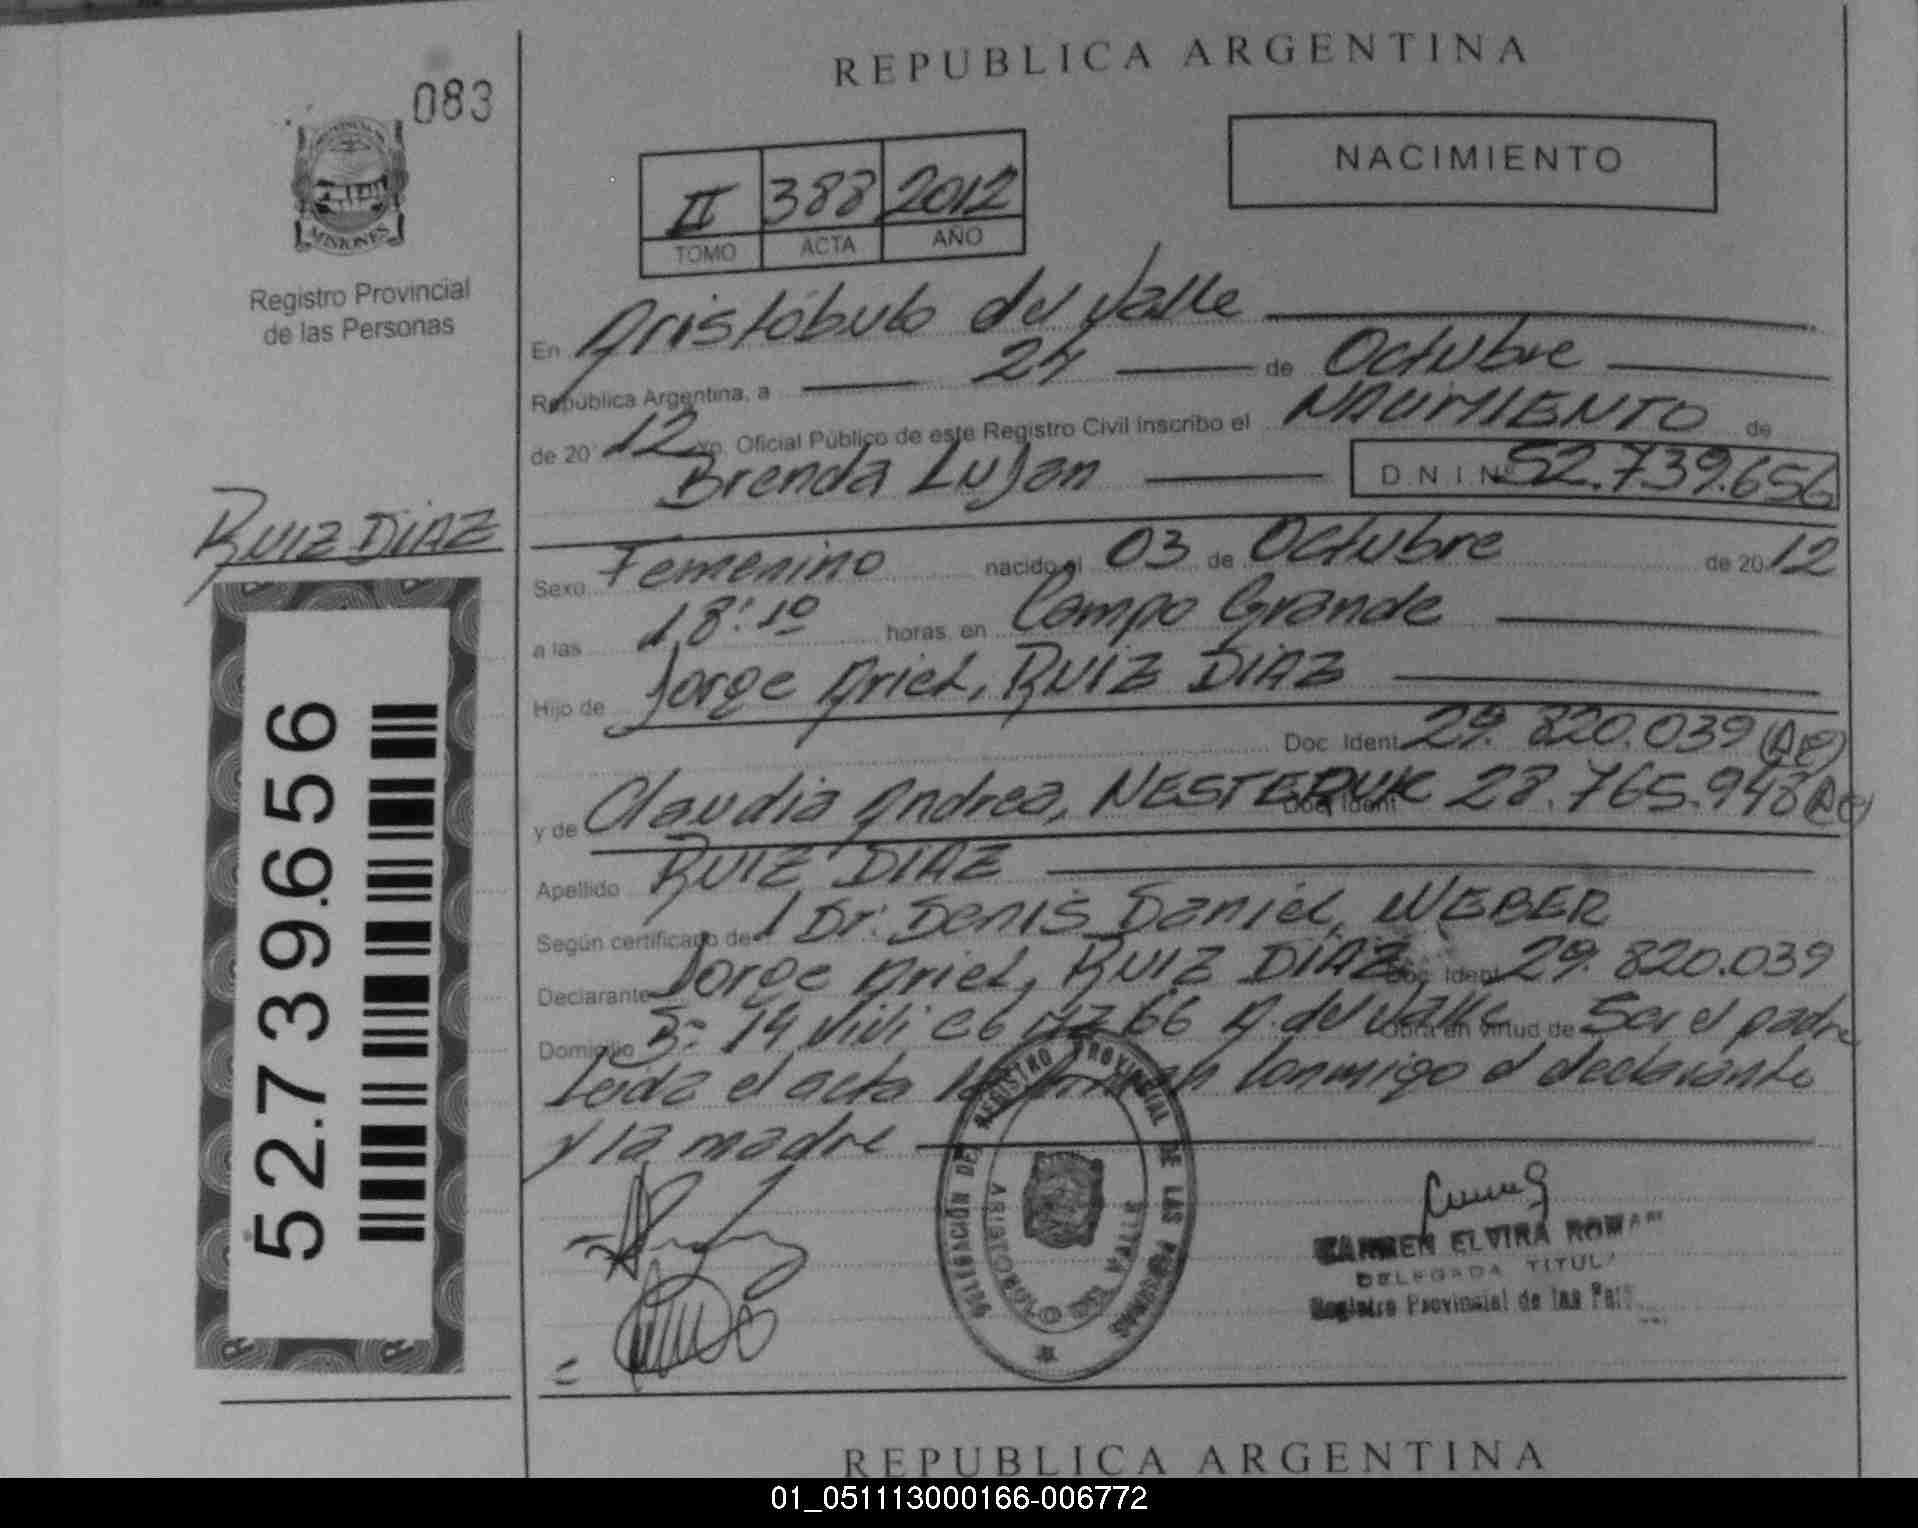 083
REPUBLICA ARGENTINA
NACIMIENTO
II 388 2012
TOMO ACTA AÑO
MISIONES
Registro Provincial
de las Personas
En Aristóbulo del Valle
República Argentina, a 24 de Octubre
de 20 12 yo, Oficial Público de este Registro Civil inscribo el NACIMIENTO de
Brenda Lujan D N I Nº 52.739.656
RUIZ DIAZ
Sexo Femenino nacido el 03 de Octubre de 20 12
a las 18:10 horas, en Campo Grande
Hijo de Jorge Ariel, RUIZ DIAZ
Doc Ident 29.820.039 (Ar)
y de Claudia Andrea, NESTERUK Doc Ident 28.765.948 (Ar)
Apellido RUIZ DIAZ
Según certificado del Dr: Denis Daniel, WEBER
Declarante Jorge Ariel, RUIZ DIAZ Doc Ident 29.820.039
Domicilio Bº 14 vivi c6 mz 66 A. del Valle Obra en virtud de Ser el padre
Leida el acta la firman conmigo el declarante
y la madre
52.739.656
DELEGACIÓN DEL REGISTRO PROVINCIAL DE LAS PERSONAS
ARISTOBULO DEL VALLE
CARMEN ELVIRA ROMAN
DELEGADA TITUL
Registro Provincial de las Per
REPUBLICA ARGENTINA
01_051113000166-006772